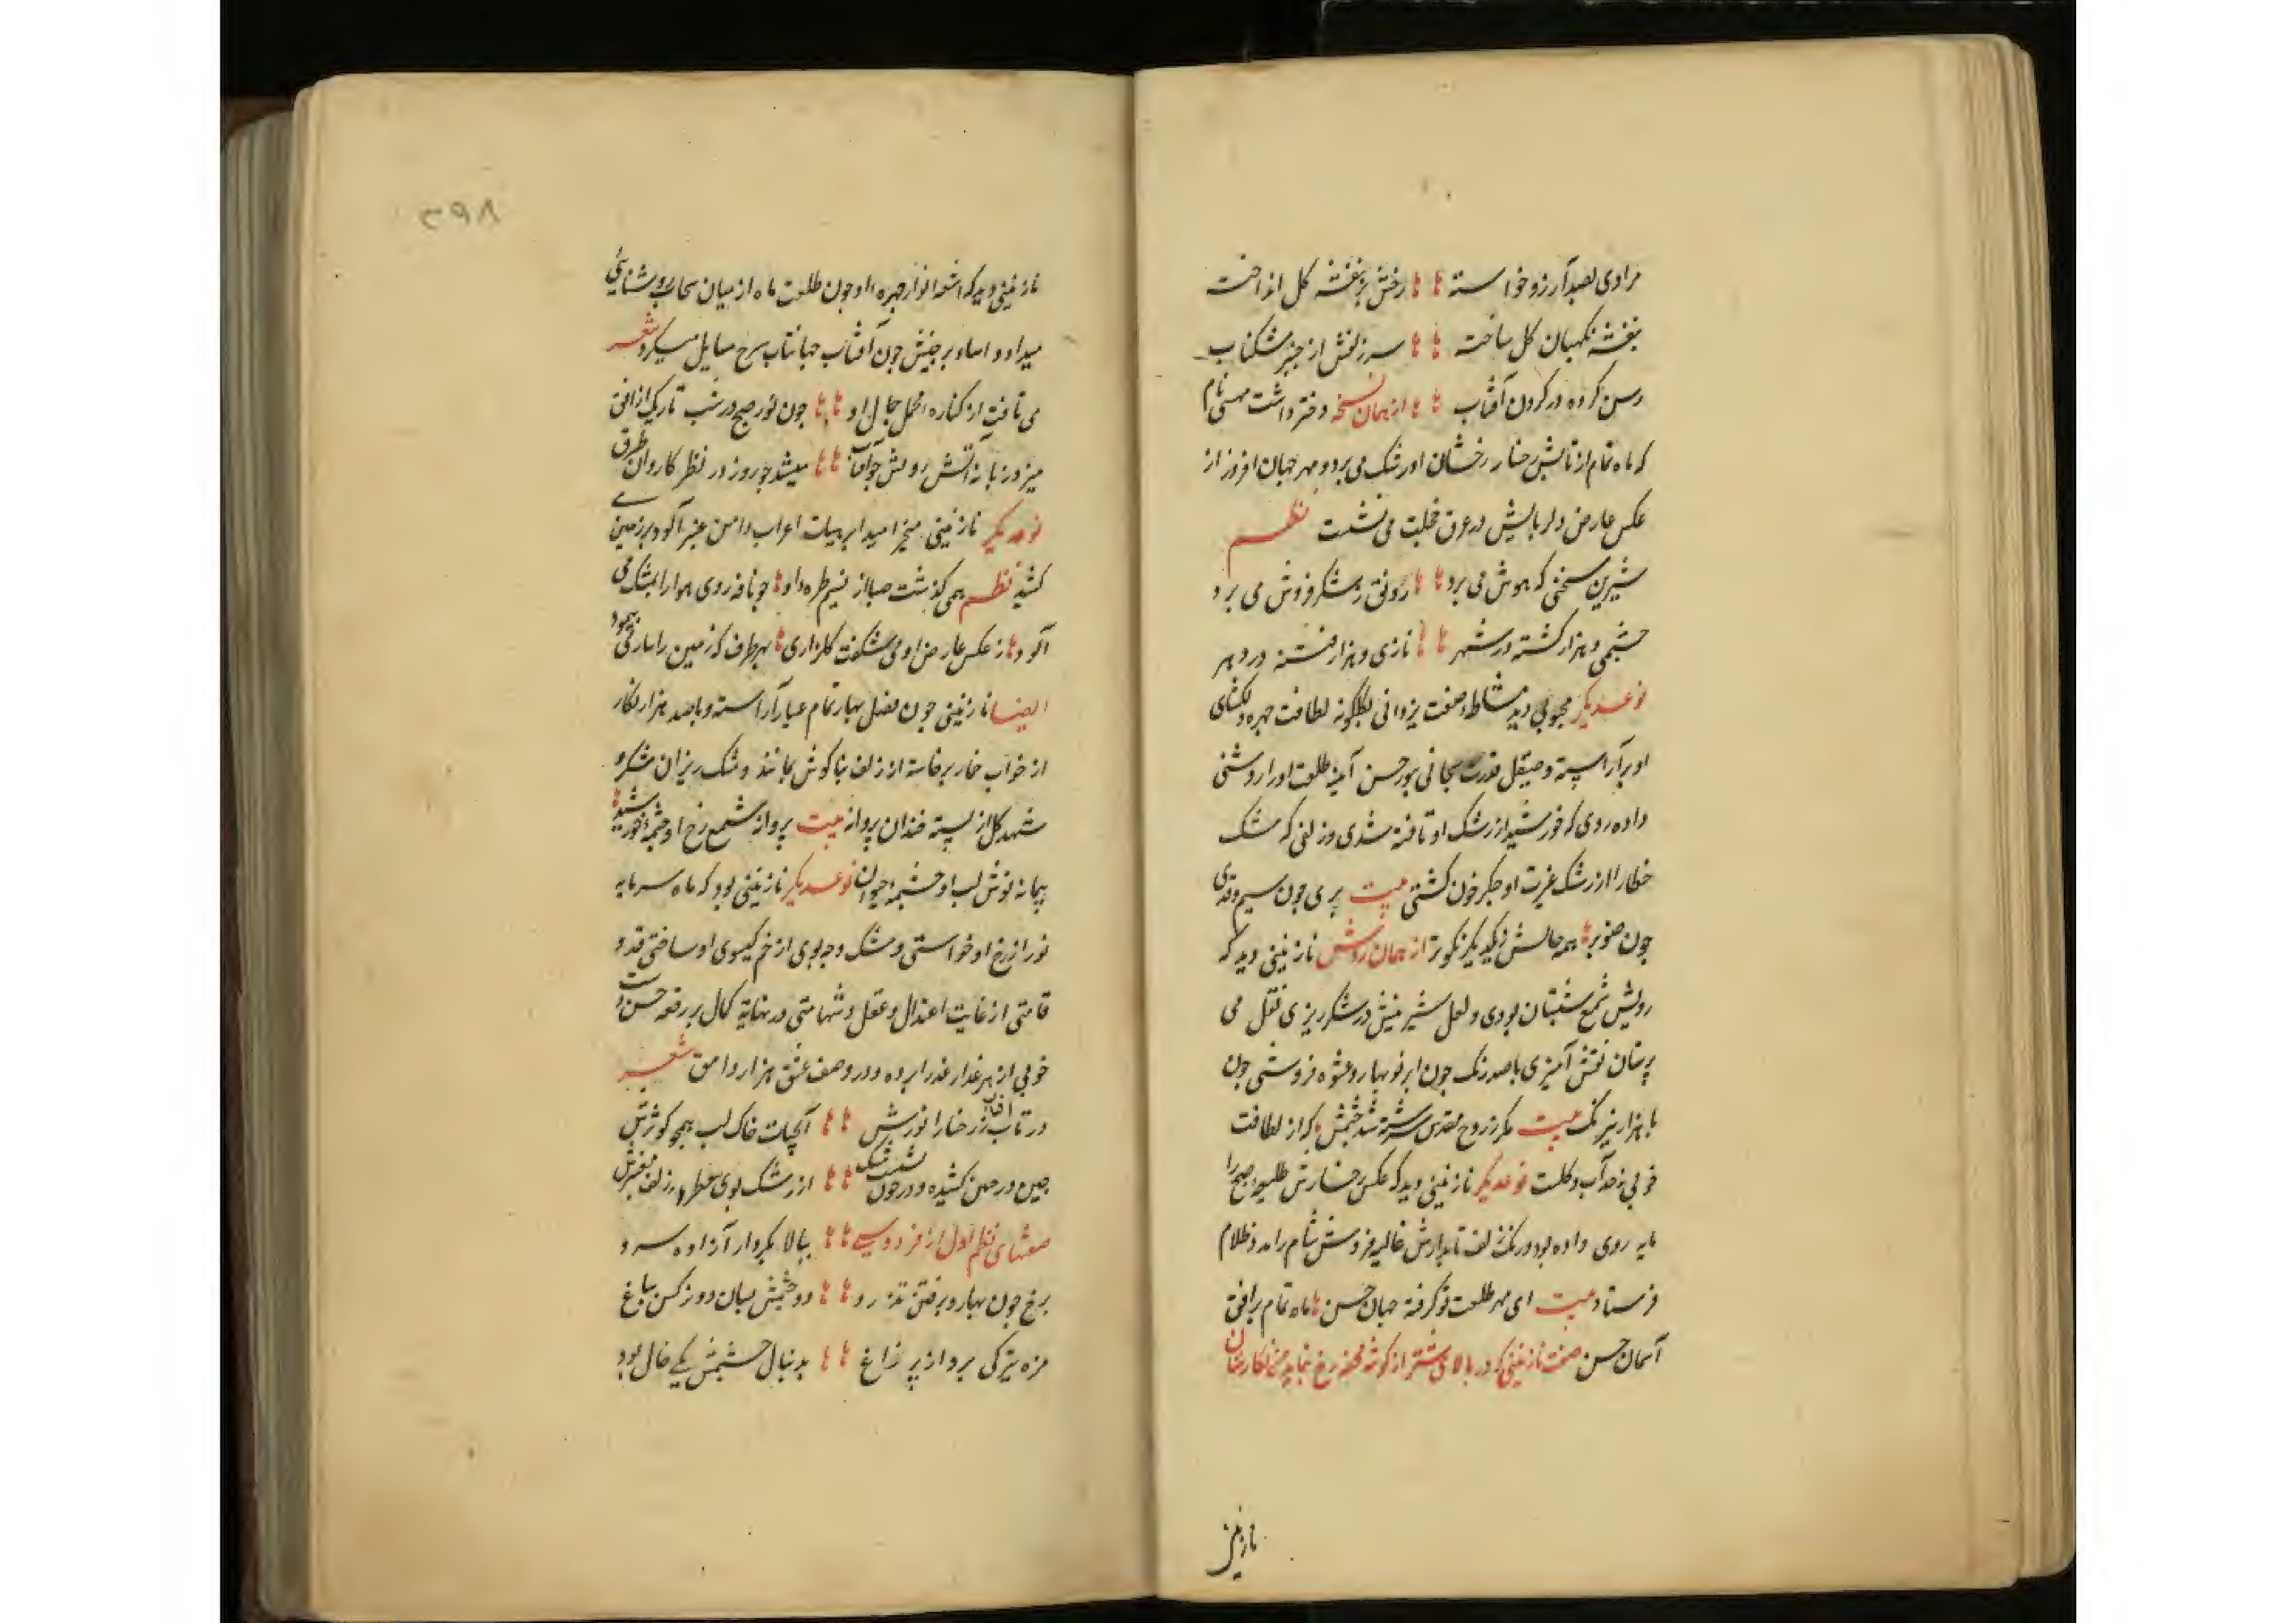 مرادی بصد آرزو خواسته ؞ ؞ رخش بر بنفشه کل انداخت
بنفشه نکهبان کل ساخته ؞ ؞ سر زلفش از چنبر مشکناب
رسن کرده در کردن آفتاب ؞ ؞ از همان نسخه دختر داشت مهسی نام
که ماه تمام از تابش رخسار رخشان او رشک می برد و مهر جهان افروز از
عکس عارض دلربایش در عرق خجلت می نشست نظم
شیرین سخنی که هوش می برد ؞ ؞ رونق ز شکر فروش می برد
چشمی و هزار کشته در شهر ؞ ؞ نازی و هزار فتنه در دهر
نوعدیکر محبوبی دید مشاطه صنعت یزدانی بکلکونه لطافت چهره دلکشای
او بر آراسته و صیقل قدرت سبحانی بنور حسن آینه طلعت او را روشنی
داده روی که خورشید از رشک او تافته شدی و زلفی که مشک
خطا را از رشک غیرت او جکر خون کشتی بیت بری چون سیم و قدی
چون صنوبر ؞ همه جالش ز یکدیکر نکوتر از همان روش نازنینی دید که
رویش شمع شبستان بودی و لعل شیرینش در شکر ریزی نقل می
پرستان نقش آمیزی با صد رنک چون ابر نوبهار و عشوه فروشی چون
با هزار نیرنک بیت مکر ز روح مقدس سرشته شد جسمش که از لطافت
خوبی نه ز آب و کلست نوعدیکر نازنینی دید که عکس رخسارش طلیعه صبح را
مایه روی داده بود و رنک زلف تابدارش غالیه فروش شام را مدد ظلام
فرستاد بیت ای مهر طلعت تو کرفته جهان حسن ؞ ماه تمام بر افق
آسمان حسن صفت نازنینی که در بالای شتر از کوشه محفه رخ نماید من نکارستان
نازنینی
۲۹۸
نازنینی دید که اشعه انوار چهره او چون طلعت ماه از میان سحاب روشنایی
میداد و اسا بر جبینش چون آفتاب جهانتاب برج سایل میکرد شعر
می تافت از کناره محمل جمال او ؞ ؞ چون نور صبح در شب تاریک از افق
میزد زبانه آتش رویش چو آفتاب ؞ ؞ میشد چو روز در نظر کاروان طرق
نوعدیکر نازنینی میخرامید ابر هیات اعراب دامن عنبر آلود بر زمین
می کشید نظم همی کذشت صبا از نسیم طره او ؞ چو نافه روی هوا را بمشک می
آلود ؞ ز عکس عارض او می شکفت کلزاری ؞ بهر طرف که زمین را بسایه می پیمود
ایضا نازنینی چون فصل بهار تمام عیار آراسته و با صد هزار نکار
از خواب خمار برخاسته از زلف بناکوش مشک ریزان شکر و
شهد کل از پسته خندان پرواز بیت پروانه شمع رخ او چشمه خورشید ؞
پیمانه نوش لب او چشمه حیوان نوعدیکر نازنینی بود که ماه سرمایه
نور از رخ او خواستی و مشک وجه بوی از خم کیسوی او ساختی قد و
قامتی از غایت اعتدال و عقل و شهامتی در نهایة کمال بر رقعه حسن دست
خوبی از هر عذار عذرا برده و در وصف عشق هزار وامق شعر
در تاب آفتاب ز رخسار انورش ؞ ؞ آبحیات خاک لب همچو کوثرش
چین در چین کشیده و در خون نشست مشک ؞ ؞ از رشک بوی معطر زلف معنبرش
صفتهای نظم اول از فردوسی ؞ ؞ ببالا بکردار آزاده سرو
برخ چون بهار و برفتن تذرو ؞ ؞ دو چشمش بسان دو نرکس بباغ
مژه تیرکی برده از پر زاغ ؞ ؞ بدنبال چشمش یکی خال بود